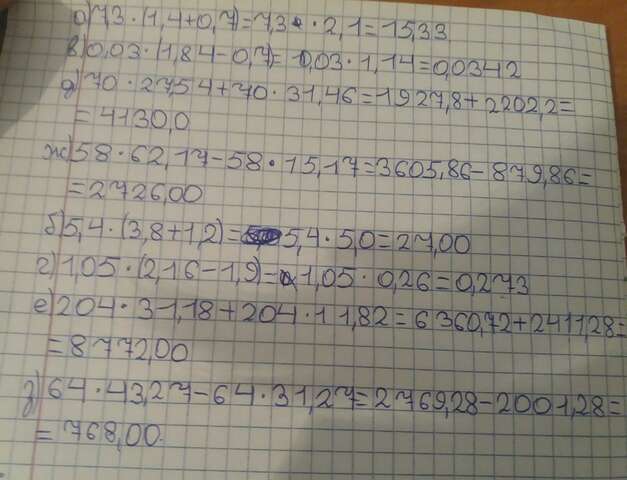 а) 7,3 · (1,4+0,7)=7,3 · 2,1=15,33
в) 0,03 · (1,84-0,7)= 0,03 · 1,14=0,0342
д) 70 · 27,54+70 · 31,46=1927,8+2202,2=
=4130,0
ж) 58 · 62,17-58 · 15,17=3605,86-879,86=
=2726,00
б) 5,4 · (3,8+1,2)= 5,4 · 5,0=27,00
г) 1,05 · (2,16-1,9)= 1,05 · 0,26=0,273
е) 204 · 31,18+204 · 11,82=6360,72+2411,28=
=8772,00
з) 64 · 43,27-64 · 31,27=2769,28-2001,28=
=768,00